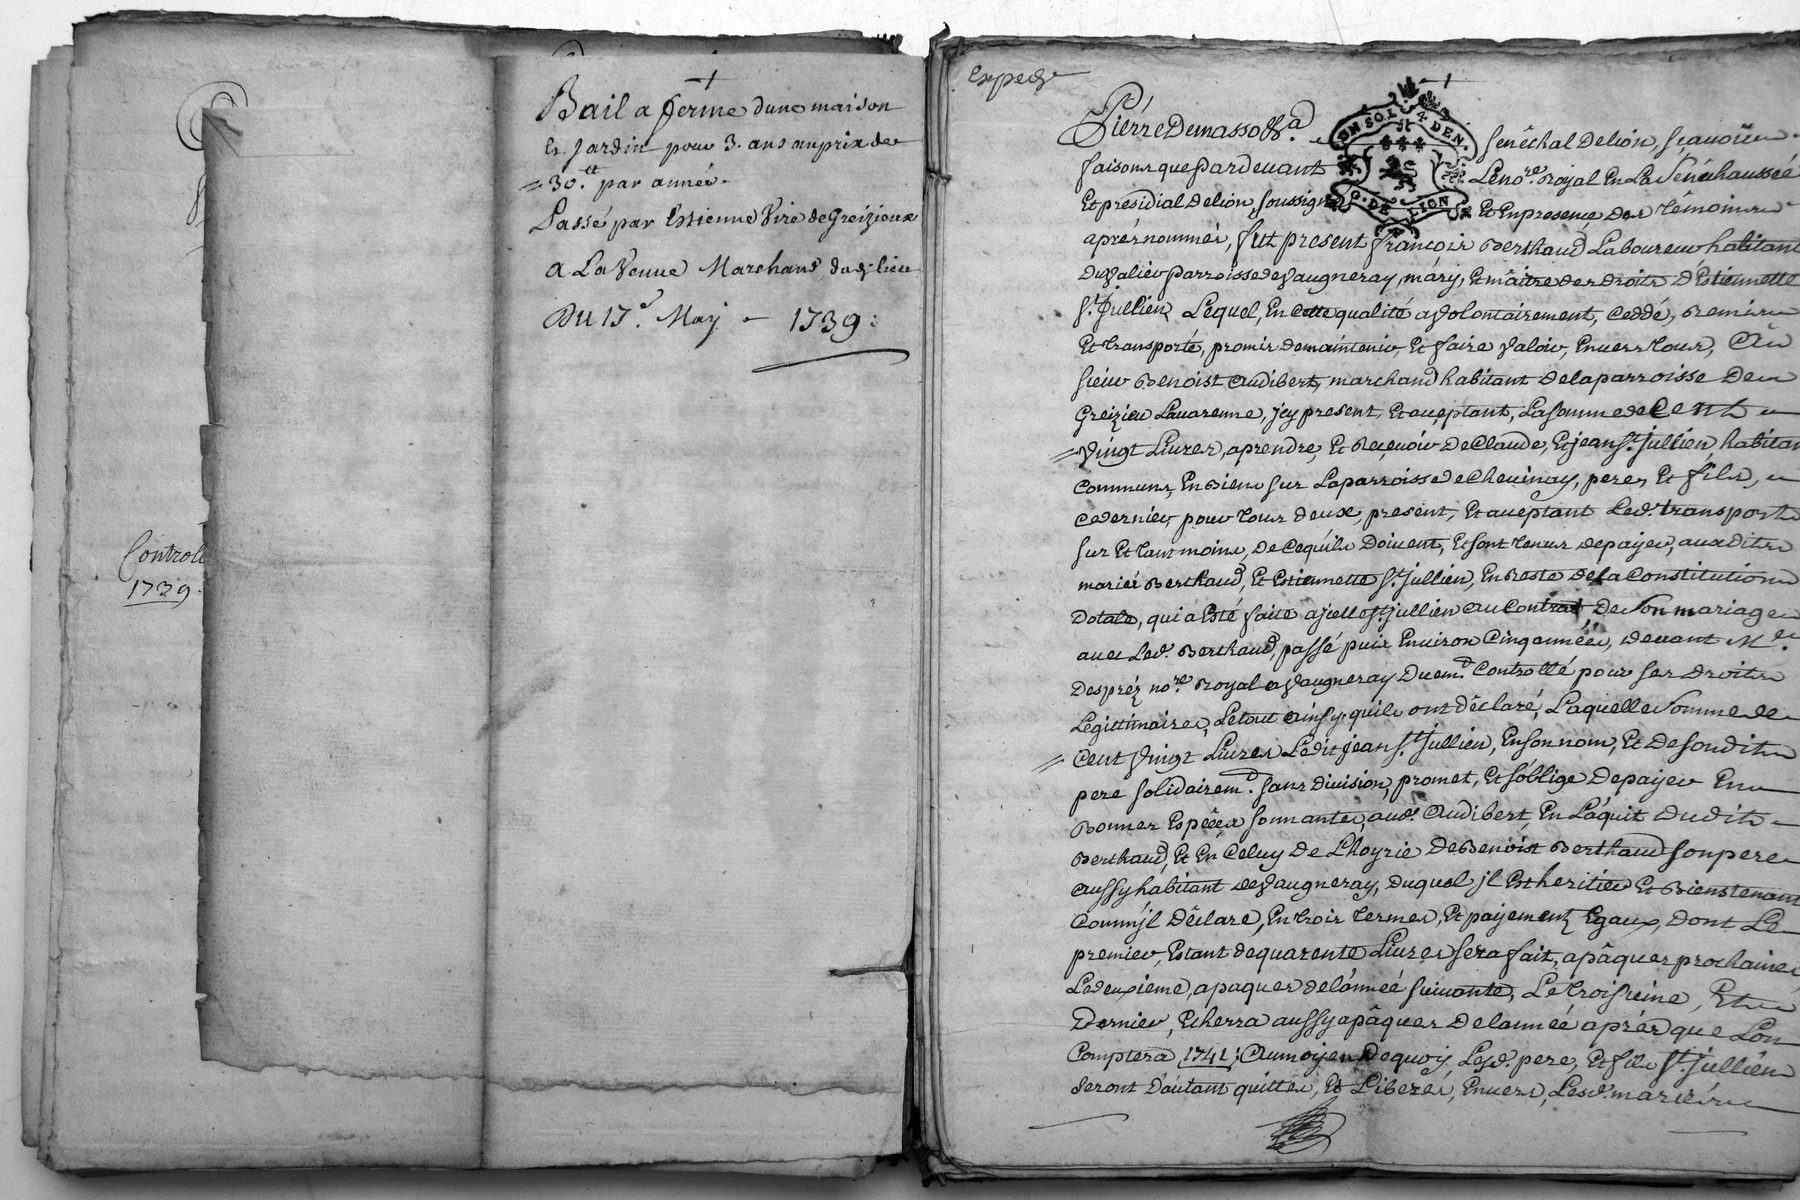 Bail a ferme dune maison
Et Jardin pour 3. ans au prix de
30.tt par année.
Passé par Estienne Vire de Greizieux
A La Venue Marchand dud. lieu
Du 17.e May - 1739:
Controll
1739.
Exped
Pierre Demasso &a. Senéchal Delion, Sçavoir
UN SOL 4. DEN.
G. DE LION
faisons que Pardevant Le no.re Royal En La Sénéchaussée
Et présidial Delion soussigné Et En presence des témoins
aprés nommés, fut present françois Berthaud Laboureur habitant
parroisse de Vaugneray, mary, Et maitre des droits d'Estiennette
St. Jullien, Lequel, En cette qualité a volontairement, Ceddé, Remis
Et transporté, promis de maintenir, Et faire Valoir, Envers tous, Au
sieur Benoist Audibert, marchand habitant de la parroisse De
Greizieu Lavarenne, jcy present, Et acceptant, La somme de Cent
Vingt Livres, a prendre, Et Recevoir de Claude, Et jean St. Jullien, habitan
Communs En Biens sur La parroisse de Chevinay, pere, Et fils,
Ce dernier, pour tous deux, present, Et acceptant Led. transport
sur Et tant moins, de Ce quils Doivent, Et sont tenus de payer, auxdits
mariés Berthaud, Et Estiennette St. Jullien, En Reste de la Constitution
Dotale, qui a Esté faite a jcelle St. Jullien au Contrat De Son mariage
avec Led. Berthaud, passé puis Environ Cinq années, devant M.e
Despréz no.re Royal a Vaugneray Duem.t Controllé pour ses droits
Légittimaires, Le tout ainsy, quils ont déclaré, Laquelle somme de
Cent Vingt Livres Ledit jean St. Jullien, En son nom, Et De sondit
pere solidairem.t sans Division, promet, Et s'oblige De payer En
Bonnes Espéces sonnantes, aud. Audibert, En L'aquit dudit
Berthaud, Et En Celuy De L'hoyrie De Benoist Berthaud son pere
aussy habitant de Vaugneray, Duquel jl Est heritier Et Bienstenant
Comm'jl Déclare, En trois termes, Et payements Egaux, dont Le
premier, Estant de quarente Livres sera fait, a pâques prochaines
Le deuxieme, a paques de l'année suivante, Le troisieme, Et
Dernier, Echerra aussy a pâques De lannée aprés que Lon
Comptera 1741; Au moyen De quoy Lesd. pere, Et fils St. Jullien
seront d'autant quittes, Et Liberés, Envers, Lesd. mariés